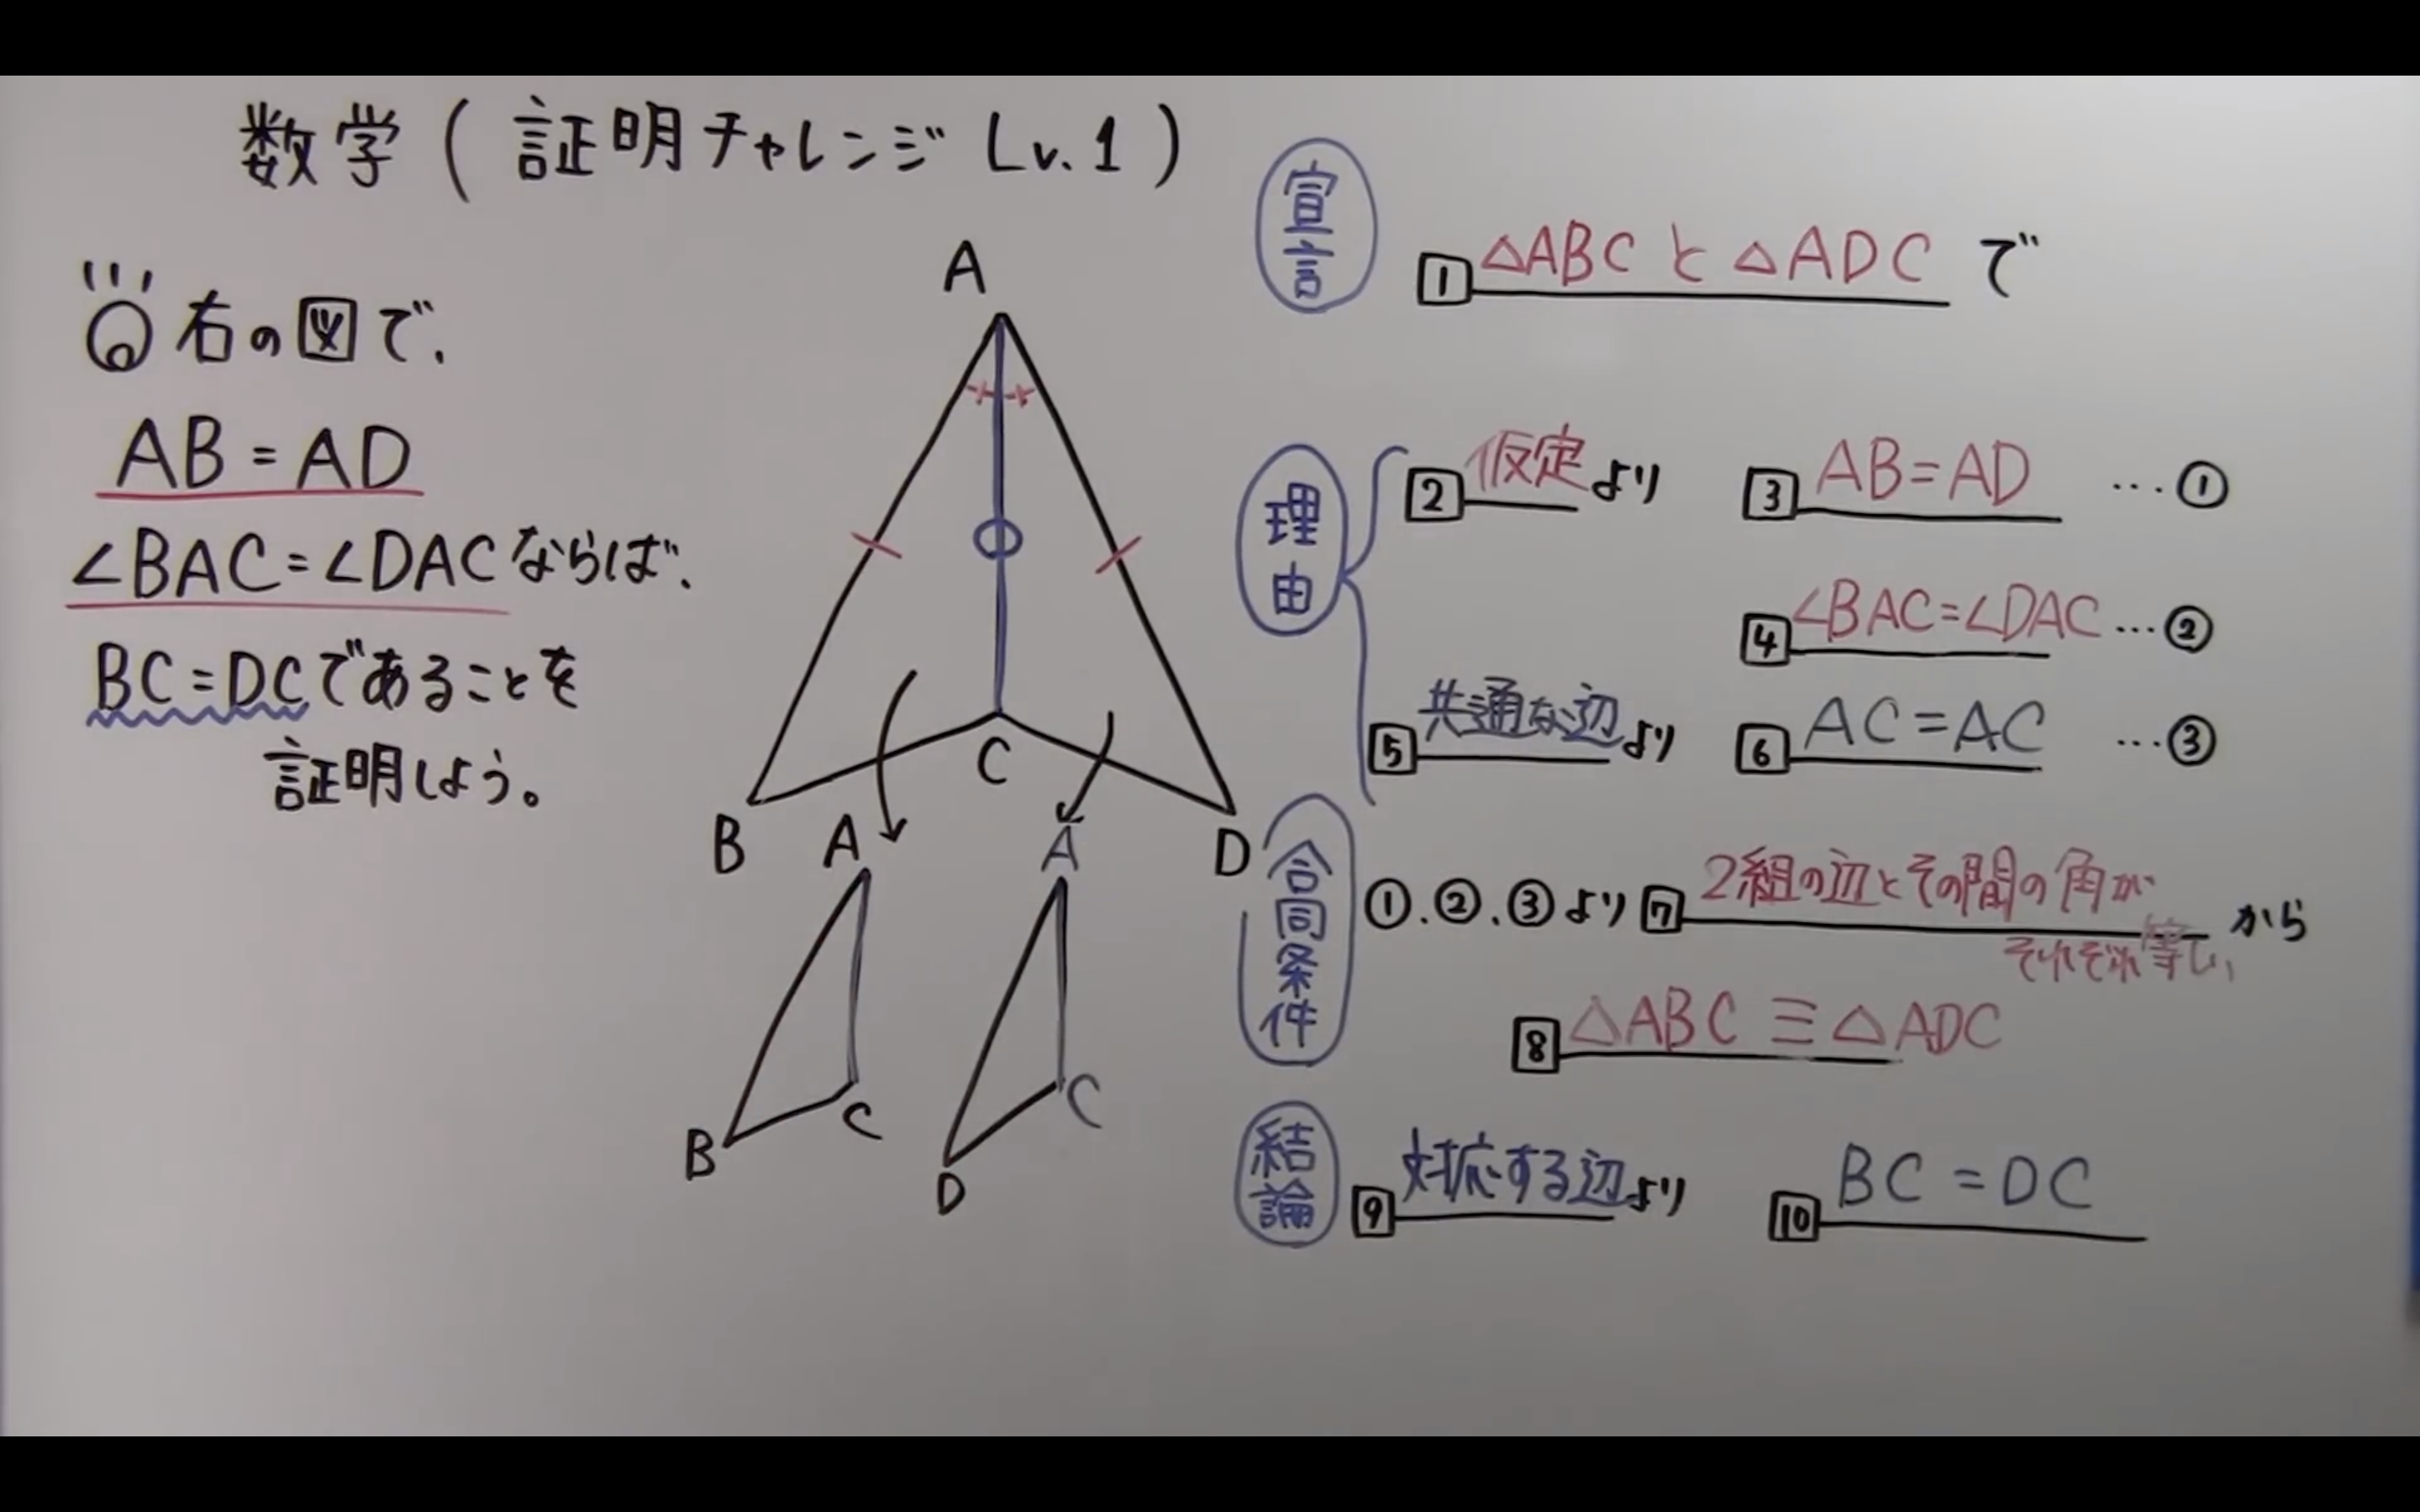 数学(証明チャレンジ Lv.1)
右の図で、
AB=AD
∠BAC=∠DACならば、
BC=DCであることを
証明しよう。
A
B
C
D
A
B
C
A
D
C
宣言
1 △ABCと△ADC で
理由
2 仮定より 3 AB=AD …①
4 ∠BAC=∠DAC …②
5 共通な辺より 6 AC=AC …③
合同条件
①.②.③より 7 2組の辺とその間の角が
それぞれ等しい から
8 △ABC≡△ADC
結論
9 対応する辺より 10 BC=DC